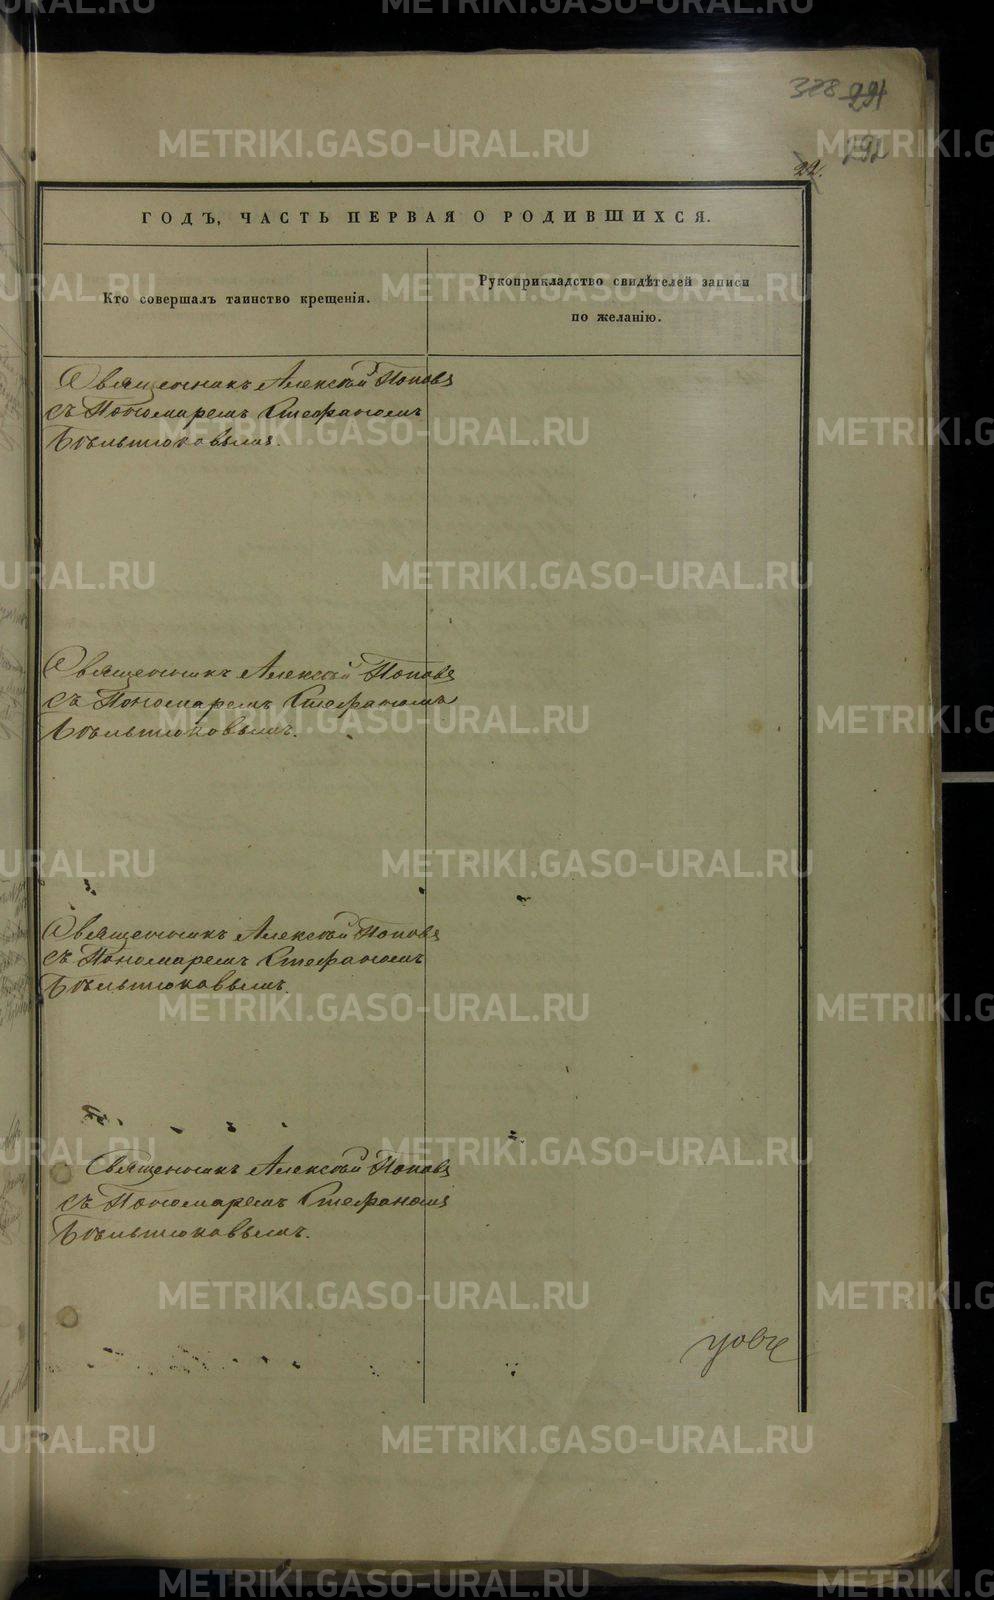 328 291
292
22.
ГОДЪ, ЧАСТЬ ПЕРВАЯ О РОДИВШИХСЯ.
Кто совершалъ таинство крещенія.
Рукоприкладство свидѣтелей записи
по желанію.
Священникъ Алексѣй Поповъ
съ Пономаремъ Стефаномъ
Бѣльтюковымъ
Священникъ Алексѣй Поповъ
съ Пономаремъ Стефаномъ
Бѣльтюковымъ.
Священникъ Алексѣй Поповъ
съ Пономаремъ Стефаномъ
Бѣльтюковымъ.
Священникъ Алексѣй Поповъ
съ Пономаремъ Стефаномъ
Бѣльтюковымъ.
METRIKI.GASO-URAL.RU